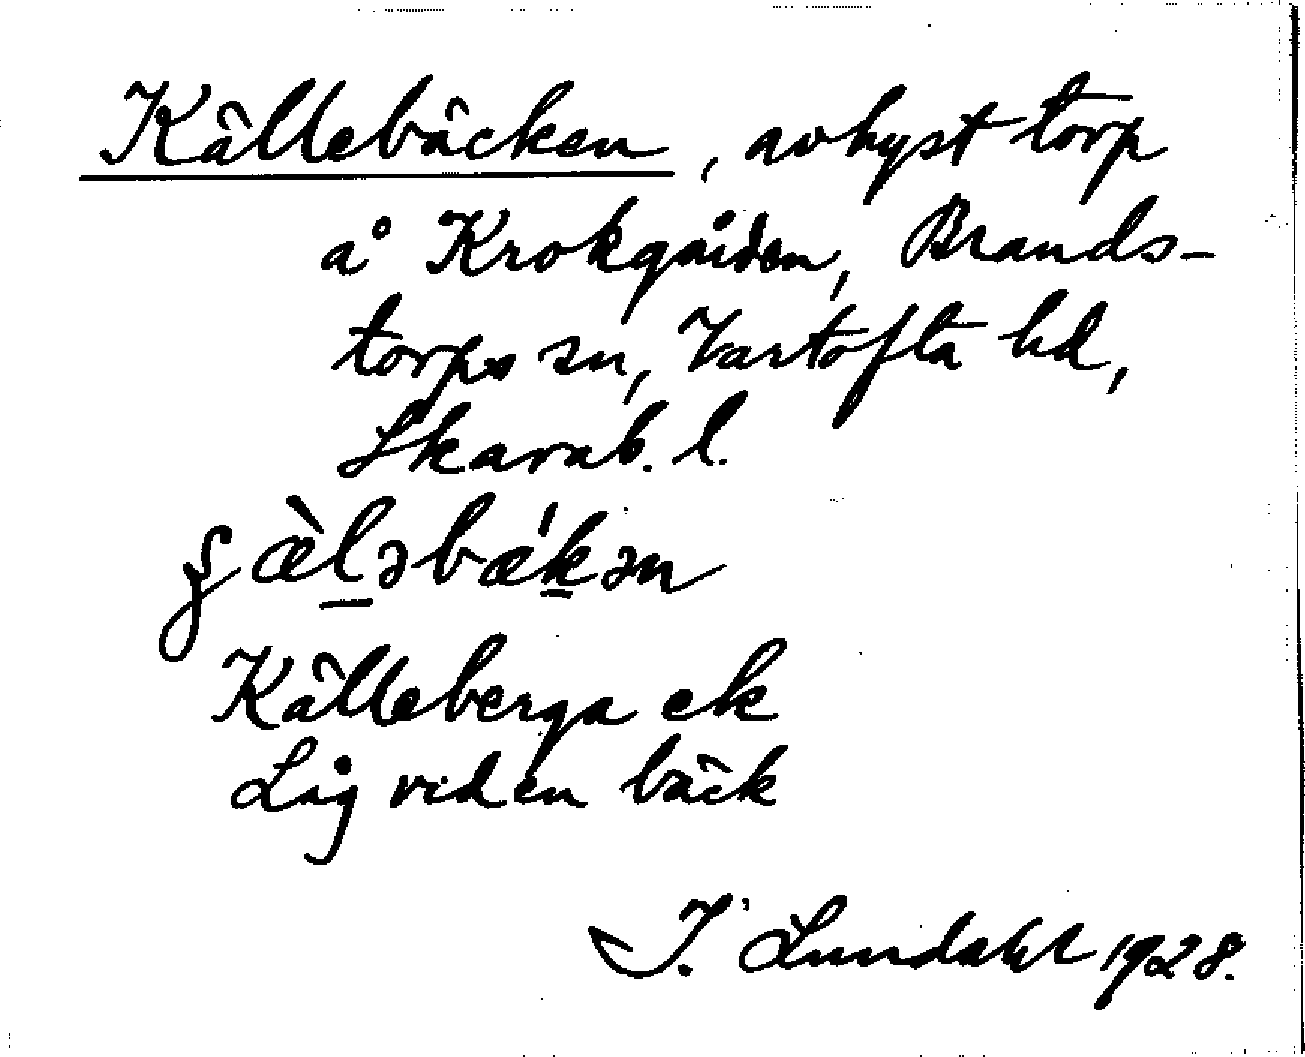 Källebäcken, avhyst torp
å Krokgården, Brands-
torps sn, Vartofta hd,
Skarab. l.
Källeberga ek
Låg vid en bäck
I. Lundahl 1928.